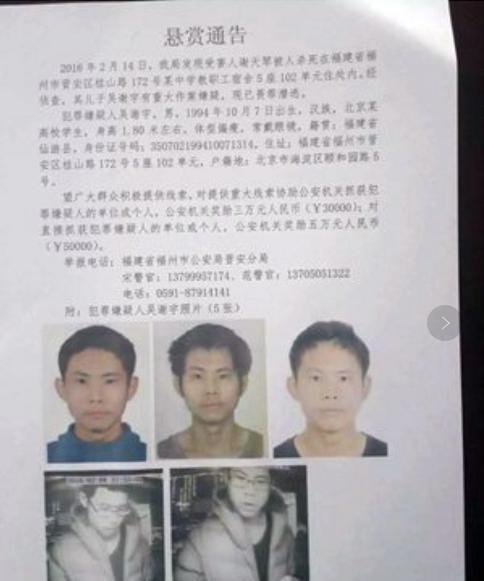 悬赏通告
2016年2月14日，我局发现受害人谢天琴被人杀死在福建省福
州市晋安区桂山路172号某中学教职工宿舍5座102单元住处内。经
侦查，其儿子吴谢宇有重大作案嫌疑，现已畏罪潜逃。
犯罪嫌疑人吴谢宇，男，1994年10月7日出生，汉族，北京某
高校学生，身高1.80米左右，体型偏瘦，常戴眼镜，籍贯：福建省
仙游县，身份证号码：350702199410071314，住址：福建省福州市晋
安区桂山路172号5座102单元，户籍地：北京市海淀区颐和园路5
号。
望广大群众积极提供线索，对提供重大线索协助公安机关抓获犯
罪嫌疑人的单位或个人，公安机关奖励三万元人民币（￥30000）；对
直接抓获犯罪嫌疑人的单位或个人，公安机关奖励五万元人民币
（￥50000）。
举报电话：福建省福州市公安局晋安分局
宋警官：13799957174、范警官：13705051322
电话：0591-87914141
附：犯罪嫌疑人吴谢宇照片（5张）